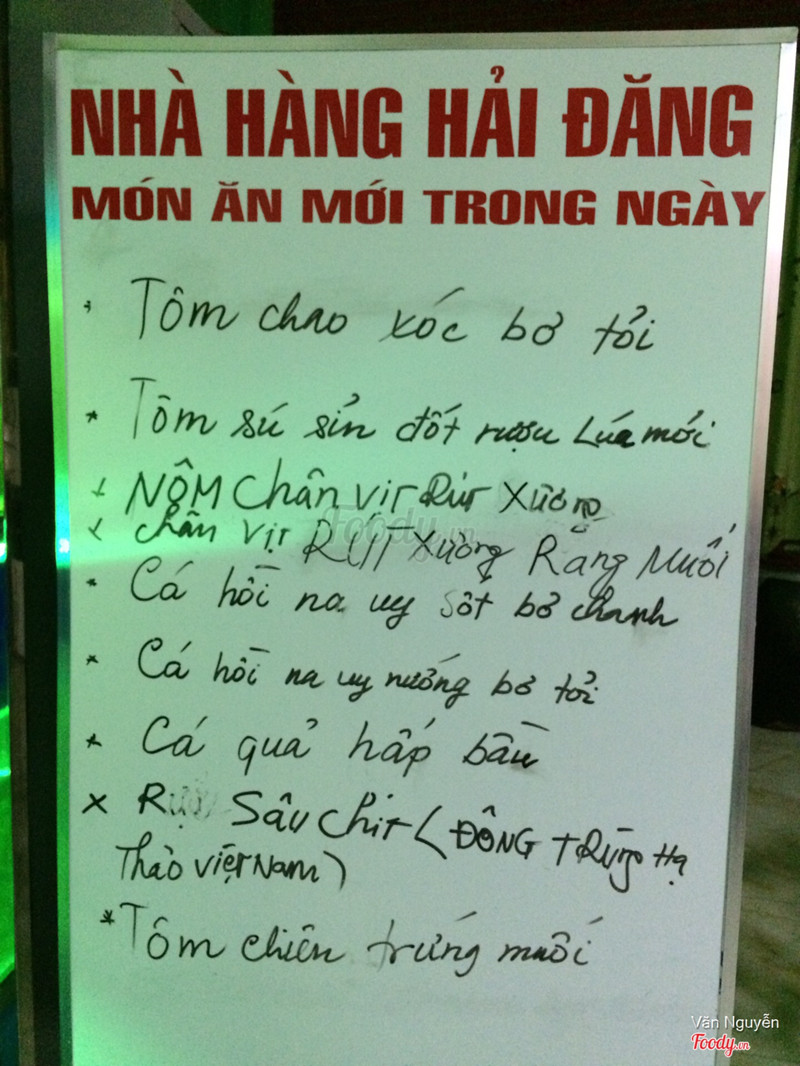 NHÀ HÀNG HẢI ĐĂNG
MÓN ĂN MỚI TRONG NGÀY
Tôm chao xóc bơ tỏi
* Tôm sú sỉn đốt rượu Lúa mới
+ NỘM Chân Vịt Rút Xương
+ Chân Vịt RÚT Xương Rang Muối
* Cá hồi na uy sôt bơ chanh
* Cá hồi na uy nướng bơ tỏi
* Cá quả hấp bầu
x Rượu Sâu Chit (ĐÔNG TRùng Hạ
Thảo Việt Nam)
* Tôm chiên trứng muối
Foody.vn
Văn Nguyễn
Foody.vn